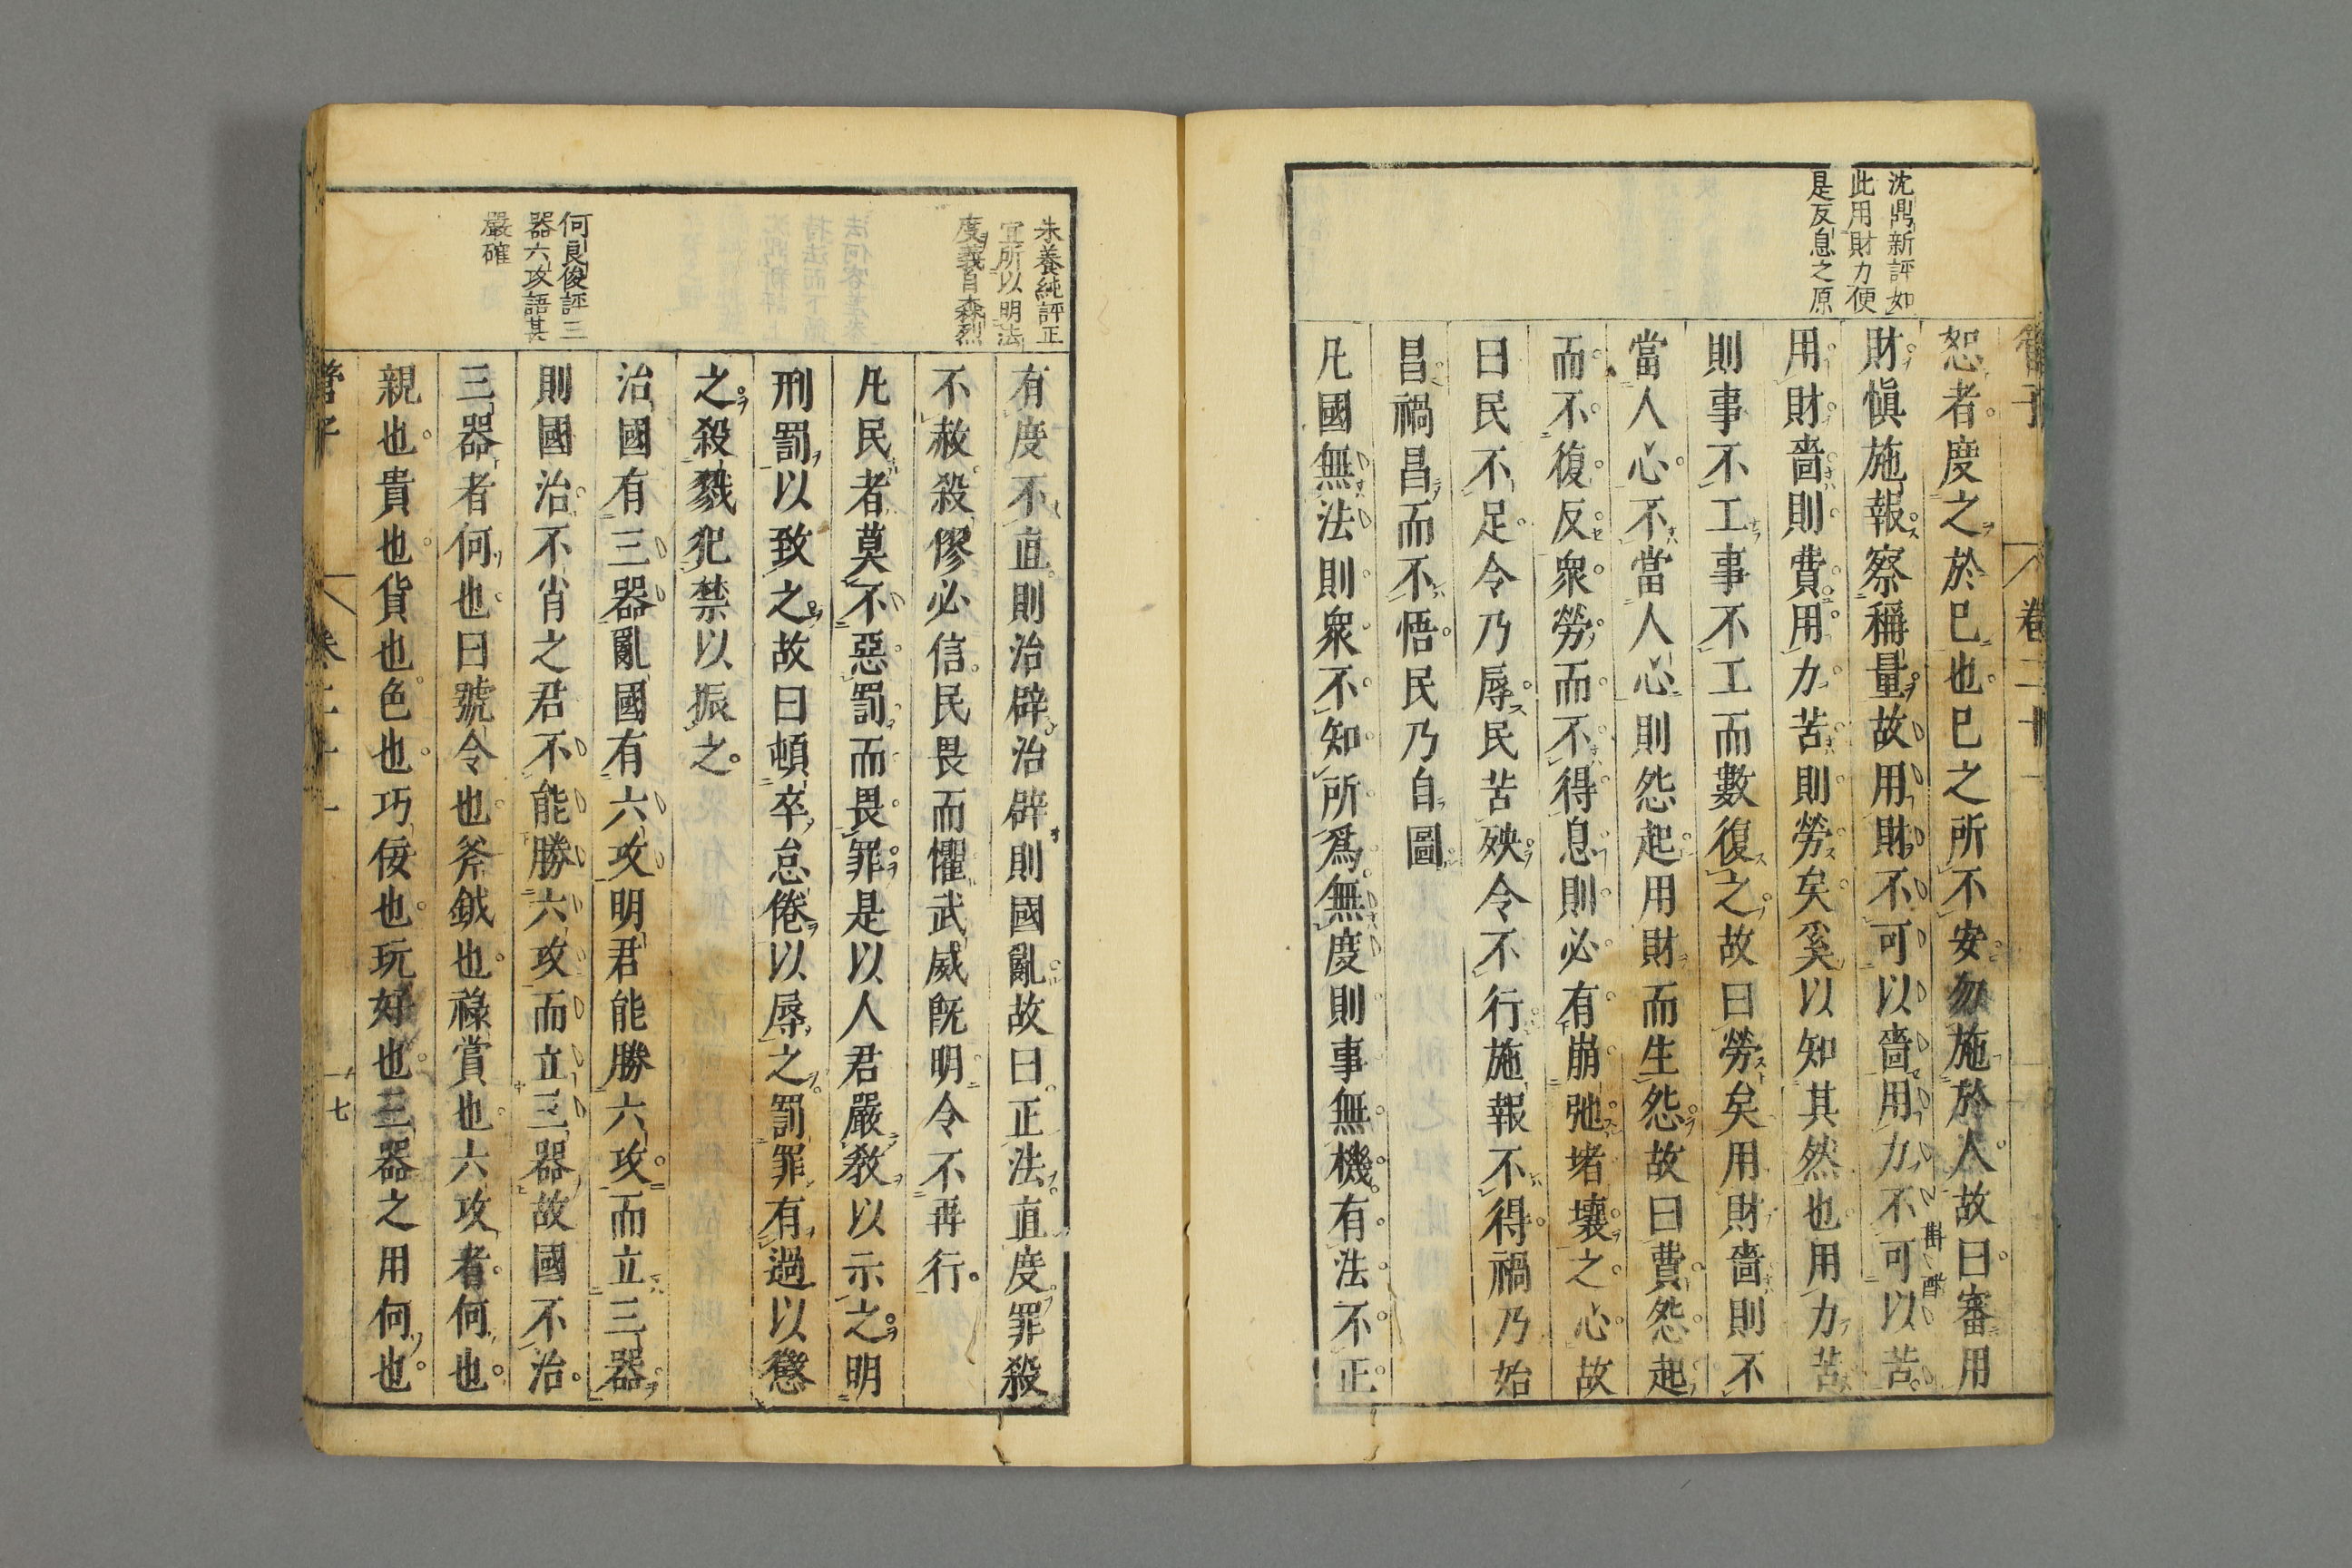 沈鼎新評如
此用財力便
是反息之原
管子
卷二十一
恕者度之於已也已之所不安勿施於人故曰審用
財愼施報察稱量故用財不可以嗇用力不可以苦
用財嗇則費用力苦則勞矣奚以知其然也用力苦
則事不工事不工而數復之故曰勞矣用財嗇則不
當人心不當人心則怨起用財而生怨故曰費怨起
而不復反衆勞而不得息則必有崩弛堵壞之心故
曰民不足令乃辱民苦殃令不行施報不得禍乃始
昌禍昌而不悟民乃自圖
凡國無法則衆不知所爲無度則事無機有法不正
朱養純評正
宜所以明法
度義自森烈
何良俊評三
器六攻語甚
嚴確
有度不直則治辟治辟則國亂故曰正法直度罪殺
不赦殺僇必信民畏而懼武威旣明令不再行
凡民者莫不惡罰而畏罪是以人君嚴敎以示之明
刑罰以致之故曰頓卒怠倦以辱之罰罪有過以懲
之殺戮犯禁以振之
治國有三器亂國有六攻明君能勝六攻而立三器
則國治不肖之君不能勝六攻而立三器故國不治
三器者何也曰號令也斧鉞也祿賞也六攻者何也
親也貴也貨也色也巧佞也玩好也三器之用何也
管子
卷二十一
十七